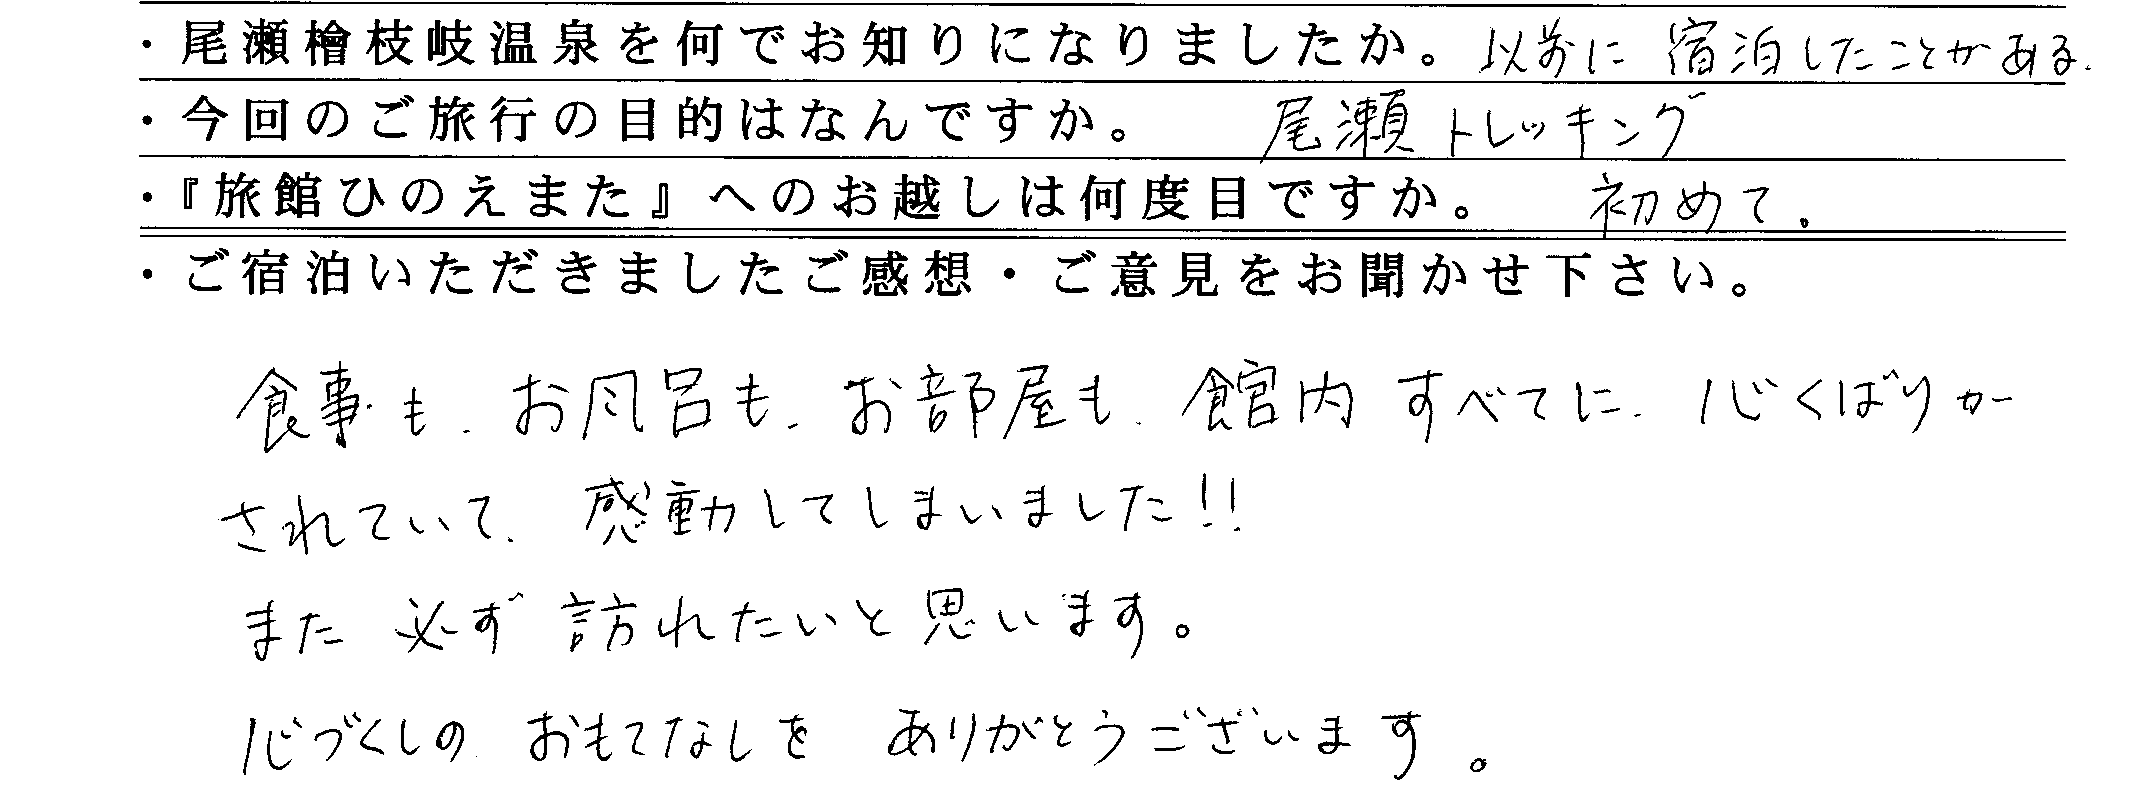 ・尾瀬檜枝岐温泉を何でお知りになりましたか。 以前に 宿泊したことがある.
・今回のご旅行の目的はなんですか。 尾瀬 トレッキング
・『旅館ひのえまた』へのお越しは何度目ですか。 初めて.
・ご宿泊いただきましたご感想・ご意見をお聞かせ下さい。
食事も、お風呂も、お部屋も、館内 すべてに、心くばりが
されていて、感動してしまいました!!
また 必ず 訪れたいと思います。
心づくしの おもてなしを ありがとうございます。